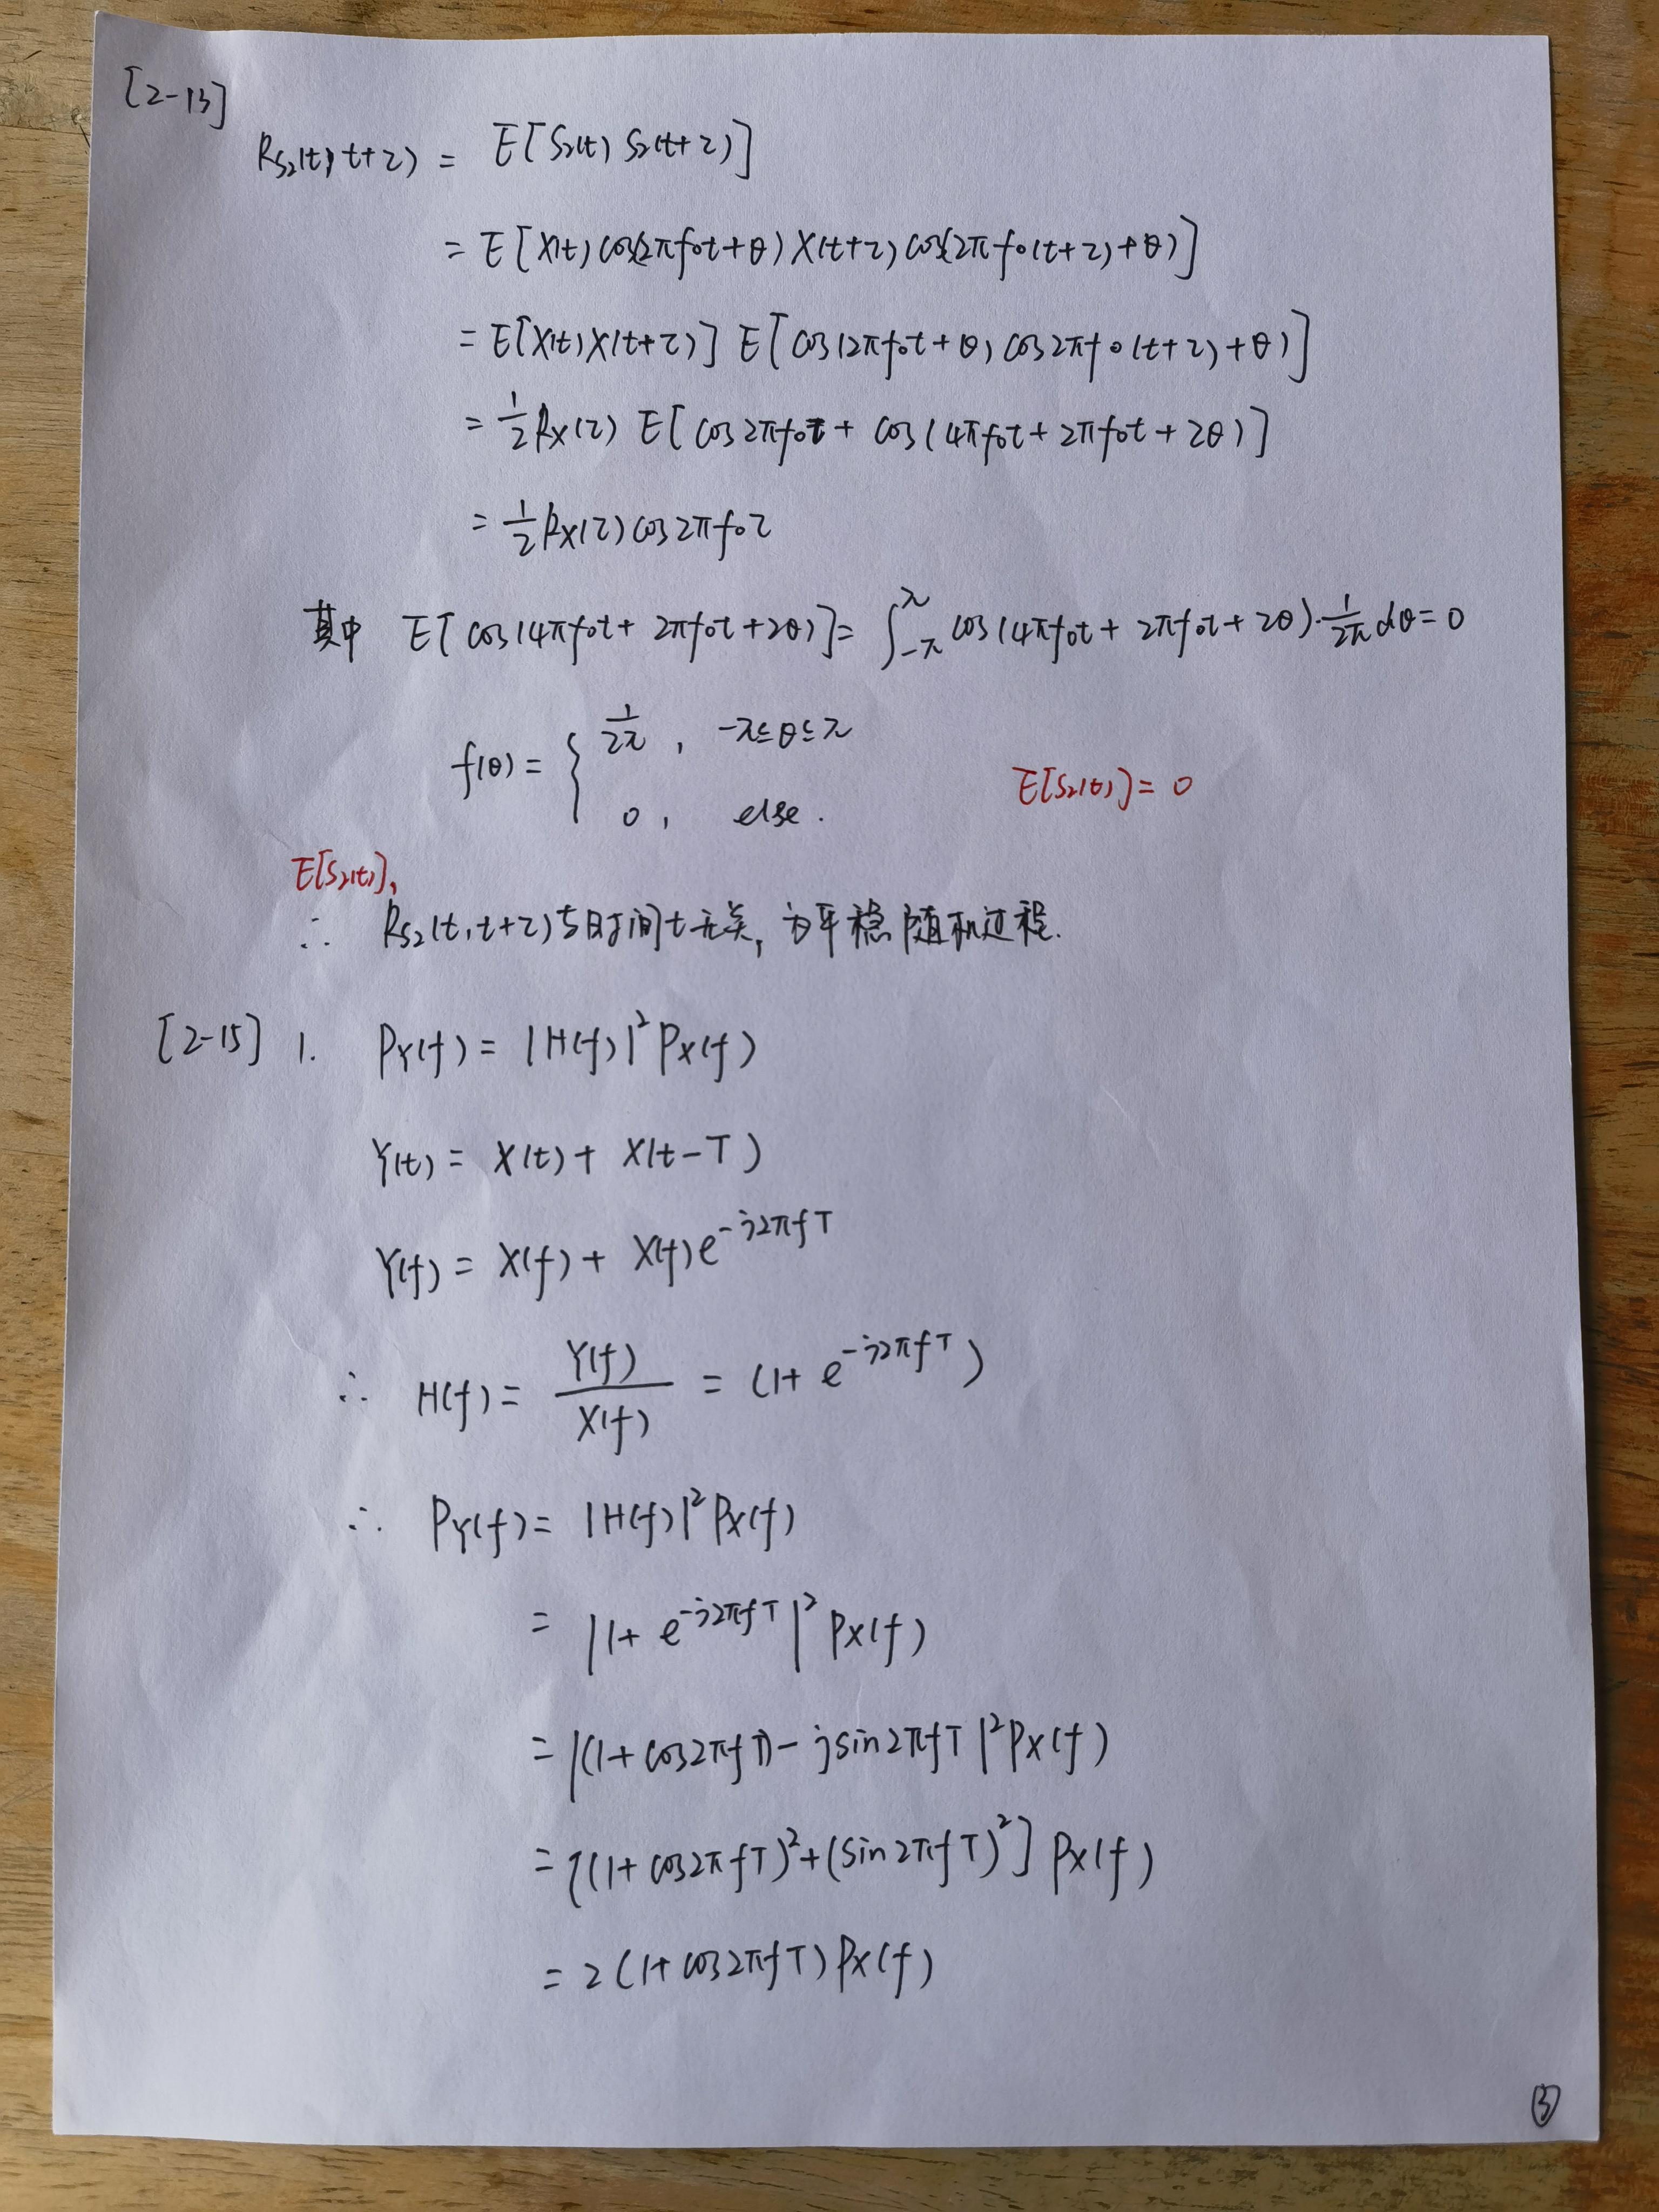 [2-13]
R_{S_2}(t, t+τ) = E[S_2(t) S_2(t+τ)]
= E[X(t) cos(2πf_0t+θ) X(t+τ) cos(2πf_0(t+τ)+θ)]
= E[X(t)X(t+τ)] E[cos(2πf_0t+θ) cos2πf_0(t+τ)+θ)]
= \frac{1}{2} R_X(τ) E[cos2πf_0τ + cos(4πf_0t + 2πf_0t + 2θ)]
= \frac{1}{2} R_X(τ) cos2πf_0τ
其中 E[cos(4πf_0t + 2πf_0t + 2θ)] = ∫_{-π}^{π} cos(4πf_0t + 2πf_0t + 2θ)·\frac{1}{2π} dθ = 0
f(θ) = { \frac{1}{2π}, -π≤θ≤π
0, else.
E[S_2(t)] = 0
E[S_2(t)],
∴ R_{S_2}(t, t+τ)与时间t无关, 为平稳随机过程.
[2-15] 1. P_Y(f) = |H(f)|^2 P_X(f)
Y(t) = X(t) + X(t-T)
Y(f) = X(f) + X(f)e^{-j2πfT}
∴ H(f) = \frac{Y(f)}{X(f)} = (1+ e^{-j2πfT})
∴ P_Y(f) = |H(f)|^2 P_X(f)
= |1+ e^{-j2πfT}|^2 P_X(f)
= |(1+cos2πfT) - jsin2πfT|^2 P_X(f)
= [(1+cos2πfT)^2 + (sin2πfT)^2] P_X(f)
= 2(1+cos2πfT) P_X(f)
③